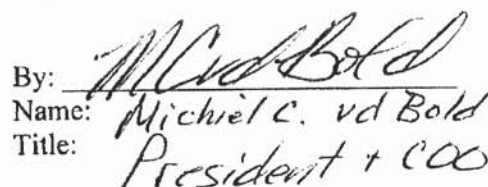 By: MCvdBold
Name: Michiel C. vd Bold
Title: President + COO